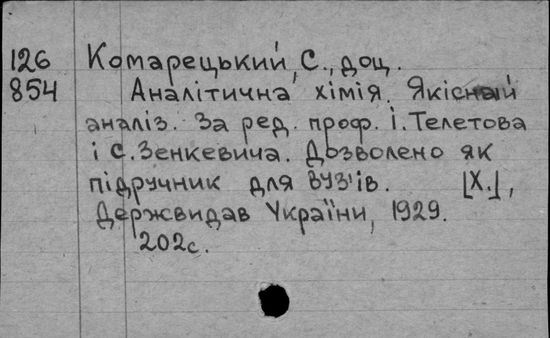 126 Комарецький, С., доц.
854 Аналітична хімія. Якісний
аналіз. За ред. проф. І. Телетова
і С. Зенкевича. Дозволено як
підручник для ВУЗ'ів. [Х.],
Держвидав України, 1929.
202с.